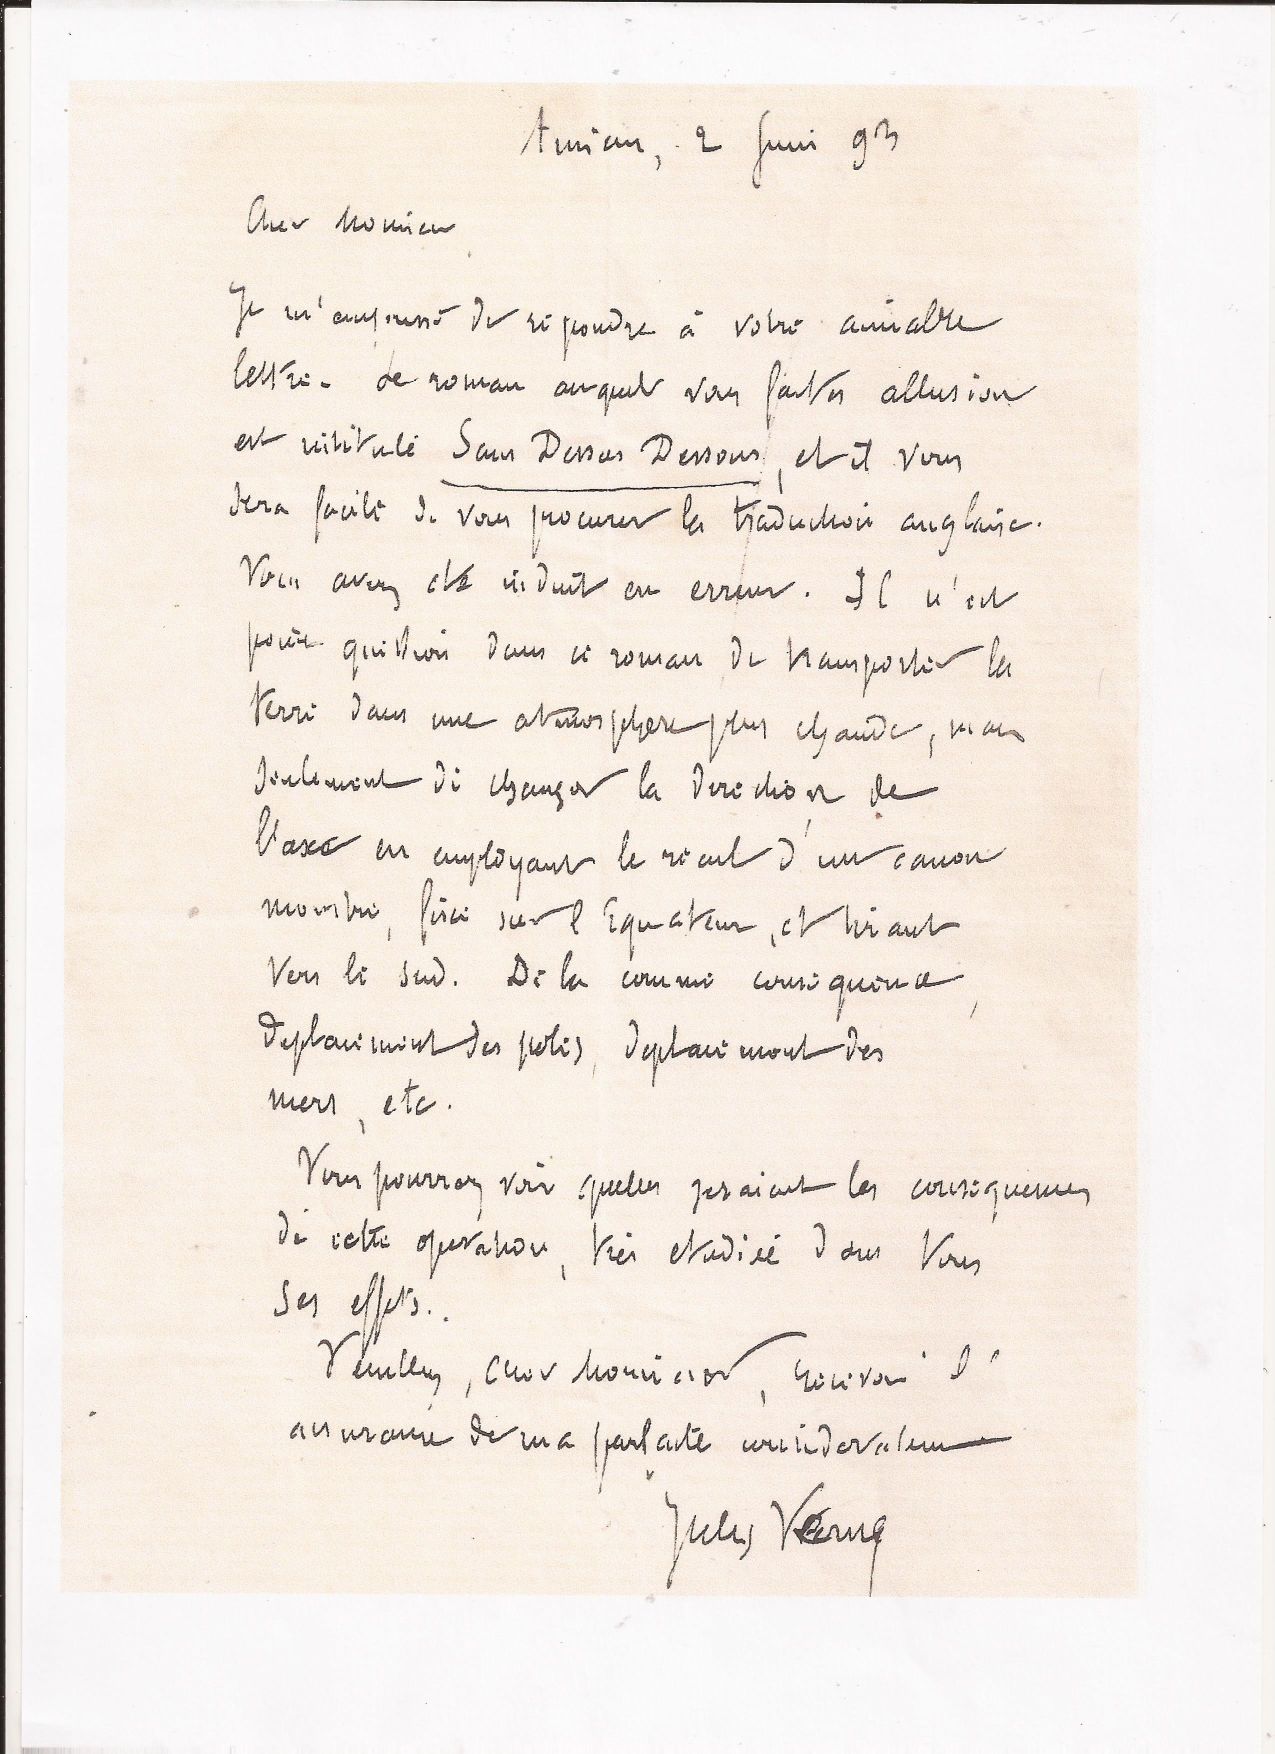 Amiens, 2 Juin 93
Cher Monsieur
Je m'empresse de répondre à votre aimable
lettre. Le roman auquel vous faites allusion
est intitulé Sans Dessus Dessous, et il vous
sera facile de vous procurer la traduction anglaise.
Vous avez été induit en erreur. Il n'est
point question dans ce roman de transporter la
terre dans une atmosphère plus chaude, mais
seulement de changer la direction de
l'axe en employant le recul d'un canon
monstre, fixé sur l'Equateur, et tirant
vers le sud. De là comme conséquence,
déplacement des pôles, déplacement des
mers, etc.
Vous pourrez voir quelles seraient les conséquences
de cette opération, très étudiée dans tous
ses effets.
Veuillez, cher Monsieur, recevoir l'
assurance de ma parfaite considération
Jules Verne